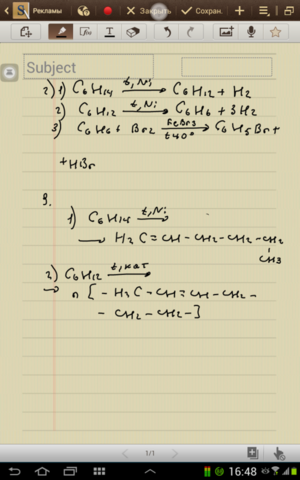 Рекламы
Закрыть
Сохран.
Subject
2) 1) C6H14 t, Ni → C6H12 + H2
2) C6H12 t, Ni → C6H6 + 3H2
3) C6H6 + Br2 FeBr3 t40° → C6H5Br +
+ HBr
3.
1) C6H14 t, Ni →
→ H2C = CH - CH2 - CH2 - CH2
CH3
2) C6H12 t, кат →
→ n [ - H2C - CH = CH - CH2 -
- CH2 - CH2 - ]
1/1
16:48